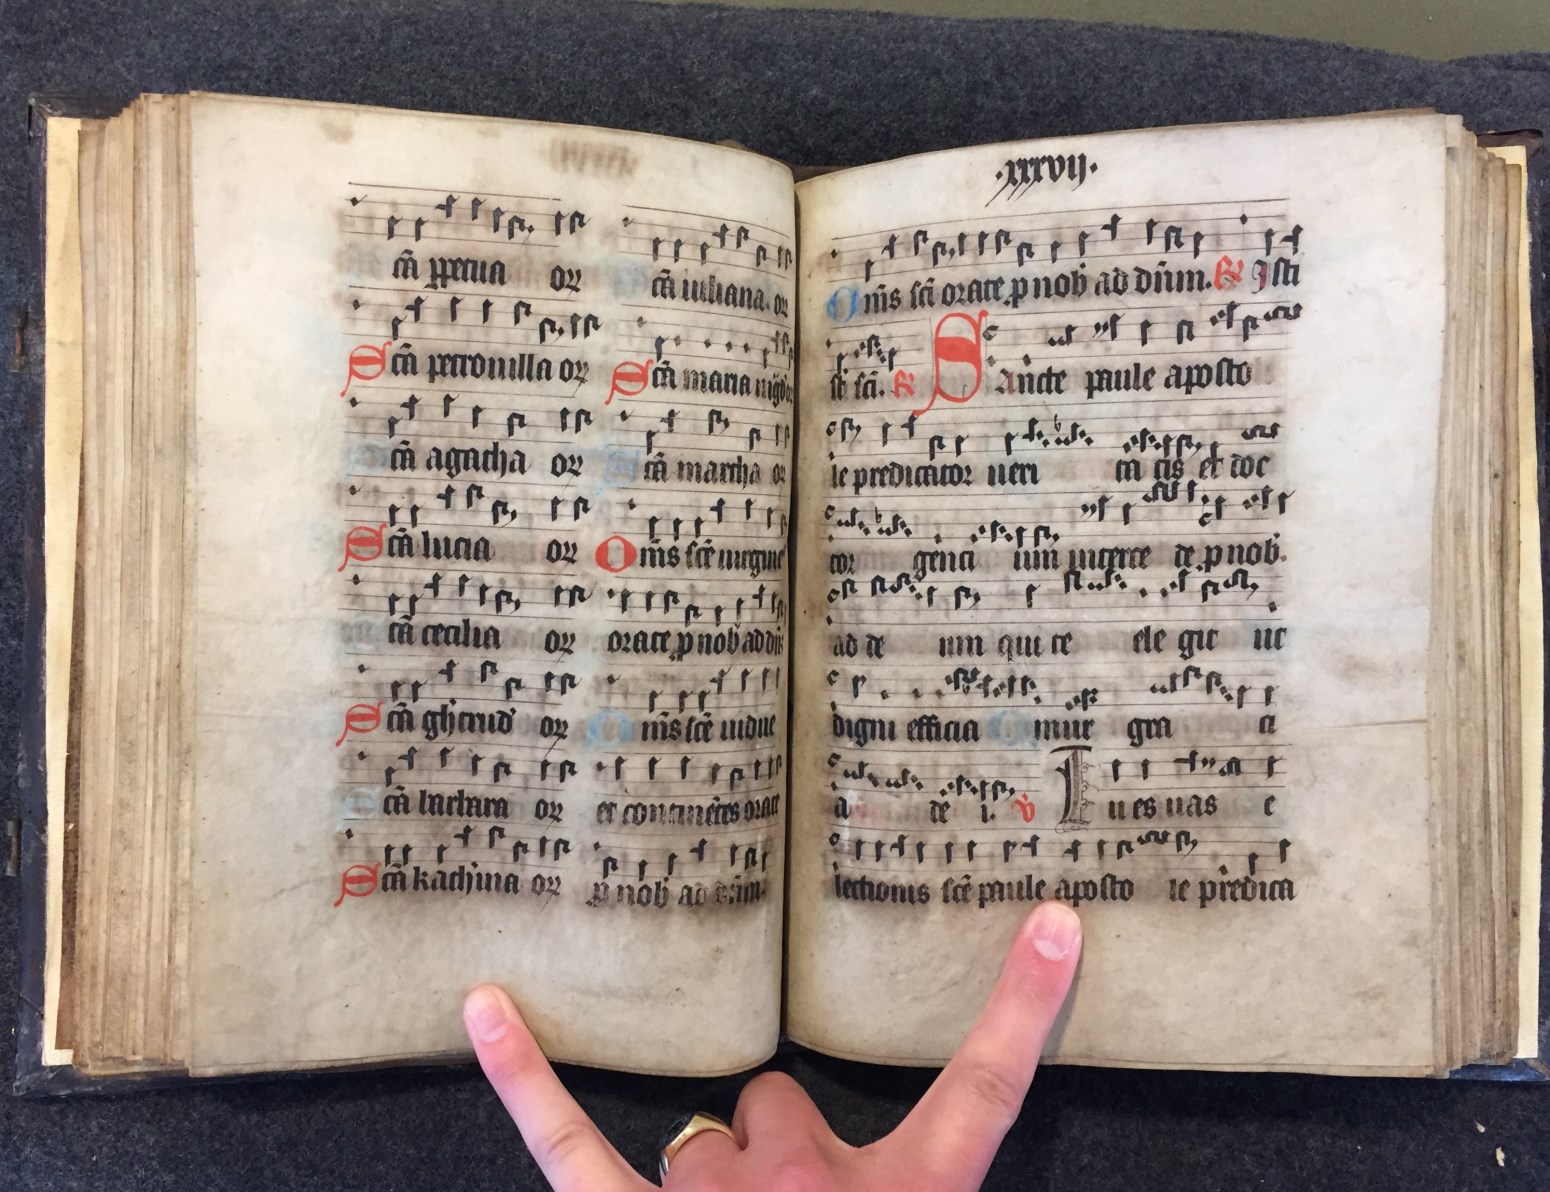 cã ꝑpetua orͬ
Scã petronilla orͬ
cã agatha orͬ
Scã lucia orͬ
cã cecilia orͬ
Scã gh̾trud' orͬ
cã barbara orͬ
Scã kath̾ina orͬ
cã iuliana. or
Scã maria mgd' or
cã martha or
Om̄s scē uirgines
orate ꝓ nob̾ ad dñ
Om̄s scē uidue
et continētes orate
ꝓ nob̾ ad dñm.
·xxxvij·
Om̄s scī orate ꝓ nob̾ ad dñm. ℟ Isti
st̄ scī. ℟ Sancte paule aposto
le predicator ueri ta tis et doc
tor genti um interce de ꝓ nob̾.
ad de um qui te ele git ut
digni efficia mur gra ti
a de i. ℣ Tu es uas e
lectionis scē paule aposto le predica